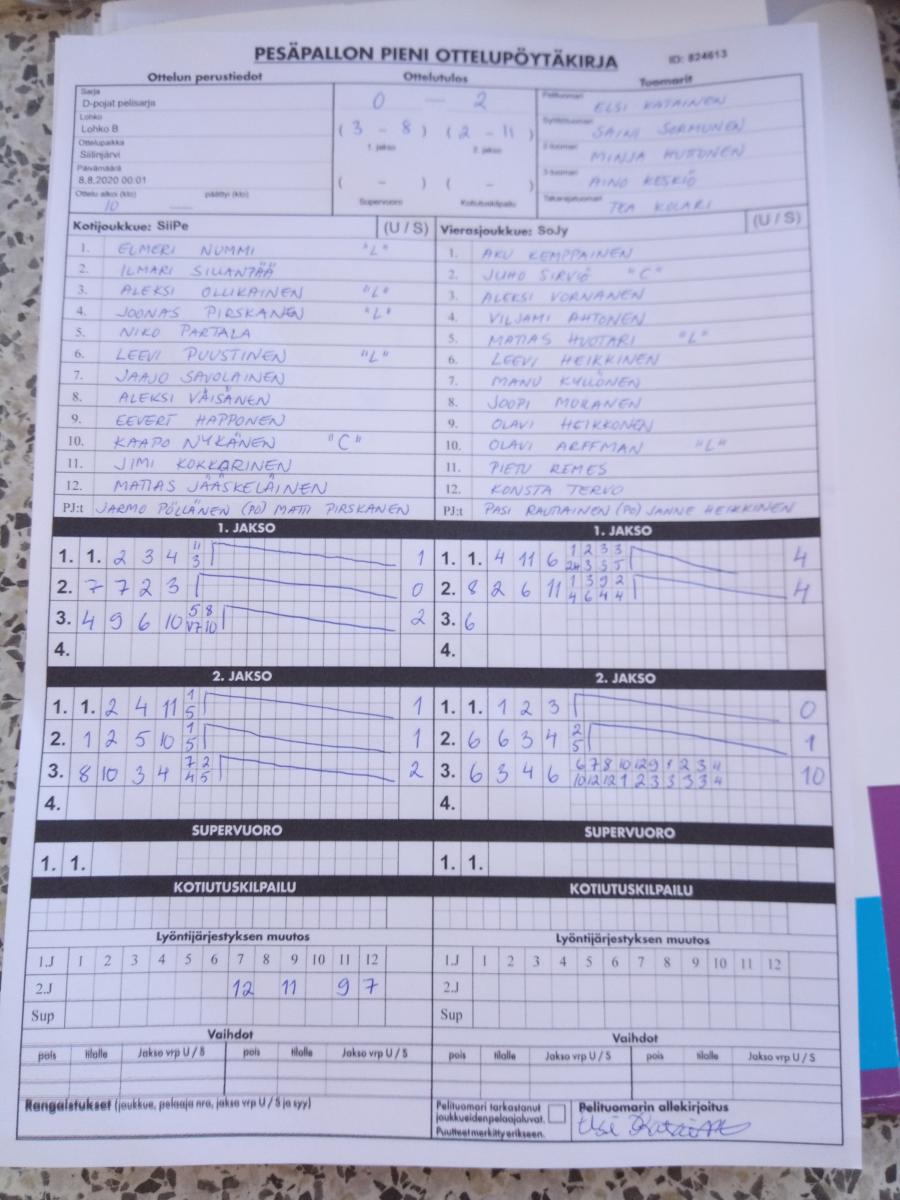 PESÄPALLON PIENI OTTELUPÖYTÄKIRJA ID: 824613
Ottelun perustiedot Ottelutulos Tuomarit
Sarja
D-pojat pelisarja
Lohko
Lohko B
Ottelupaikka
Siilinjärvi
Päivämäärä
8.8.2020 00:01
Ottelu alkoi (klo) päättyi (klo)
10
0 — 2
( 3 - 8 ) ( 2 - 11 )
1. jakso 2. jakso
( - ) ( - )
Supervuoro Kotiutuskilpailu
Pelituomari ELSI KATAINEN
Syöttötuomari SAINI SORMUNEN
2-tuomari MINJA HUTTONEN
3-tuomari AINO KESKIÖ
Takarajatuomari TEA KOLARI
Kotijoukkue: SiiPe (U / S)
1. ELMERI NUMMI "L"
2. ILMARI SILLANTÄÄ
3. ALEKSI OLLIKAINEN "L"
4. JOONAS PIRSKANEN "L"
5. NIKO PARTALA
6. LEEVI PUUSTINEN "L"
7. JAAJO SAVOLAINEN
8. ALEKSI VÄISÄNEN
9. EEVERT HAPPONEN
10. KAAPO NYKÄNEN "C"
11. JIMI KOKKARINEN
12. MATIAS JÄÄSKELÄINEN
PJ:t JARMO PÖLLÄNEN (PO) MATTI PIRSKANEN
Vierasjoukkue: SoJy (U / S)
1. AKU KEMPPAINEN
2. JUHO SIRVIÖ "C"
3. ALEKSI VORNANEN
4. VILJAMI AHTONEN
5. MATIAS HUOTARI "L"
6. LEEVI HEIKKINEN
7. MANU KYLLÖNEN
8. JOOPI MORANEN
9. OLAVI HEIKKONEN
10. OLAVI ARFFMAN "L"
11. PIETU REMES
12. KONSTA TERVO
PJ:t PASI RAUTIAINEN (PO) JANNE HEIKKINEN
1. JAKSO
1. 1. 2 3 4 11 3 1
2. 7 7 2 3 0
3. 4 9 6 10 5 8 10 2
4.
1. JAKSO
1. 1. 4 11 6 1 2 3 3 3 5 4
2. 8 2 6 11 1 3 9 2 4 6 4 4 4
3. 6
4.
2. JAKSO
1. 1. 2 4 11 1 5 1
2. 1 2 5 10 1 5 1
3. 8 10 3 4 7 2 4 5 2
4.
2. JAKSO
1. 1. 1 2 3 0
2. 6 6 3 4 2 5 1
3. 6 3 4 6 6 7 8 10 12 9 1 2 3 4
10 12 12 1 2 3 3 3 3 4 10
4.
SUPERVUORO
1. 1.
SUPERVUORO
1. 1.
KOTIUTUSKILPAILU
KOTIUTUSKILPAILU
Lyöntijärjestyksen muutos
1.J 1 2 3 4 5 6 7 8 9 10 11 12
2.J 12 11 9 7
Sup
Lyöntijärjestyksen muutos
1.J 1 2 3 4 5 6 7 8 9 10 11 12
2.J
Sup
Vaihdot
pois tilalle Jakso vrp U / S pois tilalle Jakso vrp U / S
Vaihdot
pois tilalle Jakso vrp U / S pois tilalle Jakso vrp U / S
Rangaistukset (joukkue, pelaaja nro, jakso vrp U / S ja syy)
Pelituomari tarkastanut
joukkueiden pelaajaluvat.
Puutteet merkitty erikseen.
Pelituomarin allekirjoitus